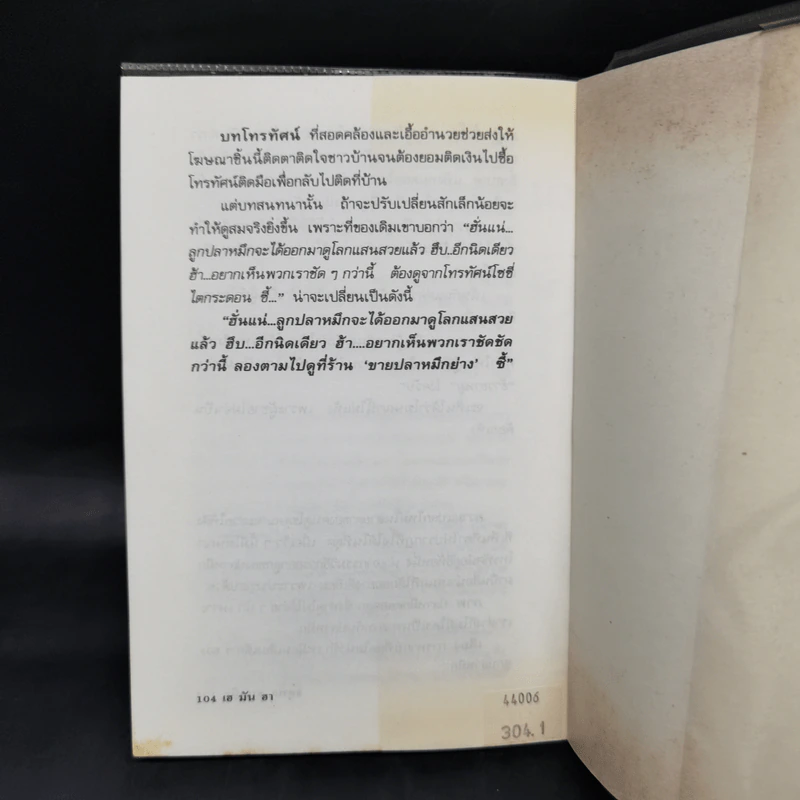 บทโทรทัศน์ ที่สอดคล้องและเอื้ออำนวยช่วยส่งให้
โฆษณาชิ้นนี้ติดตาติดใจชาวบ้านจนต้องยอมติดเงินไปซื้อ
โทรทัศน์ติดมือเพื่อกลับไปติดที่บ้าน
แต่บทสนทนานั้น ถ้าจะปรับเปลี่ยนสักเล็กน้อยจะ
ทำให้ดูสมจริงยิ่งขึ้น เพราะที่ของเดิมเขาบอกว่า “ฮั่นแน่...
ลูกปลาหมึกจะได้ออกมาดูโลกแสนสวยแล้ว ฮึบ..อีกนิดเดียว
ฮ้า...อยากเห็นพวกเราชัด ๆ กว่านี้ ต้องดูจากโทรทัศน์โซชี่
ไตกระดอน ซี้...” น่าจะเปลี่ยนเป็นดังนี้
“ฮั่นแน่...ลูกปลาหมึกจะได้ออกมาดูโลกแสนสวย
แล้ว ฮึบ...อีกนิดเดียว ฮ้า....อยากเห็นพวกเราชัดชัด
กว่านี้ ลองตามไปดูที่ร้าน ‘ขายปลาหมึกย่าง’ ซี้”
104 เฮ มัน ฮา
44006
304.1